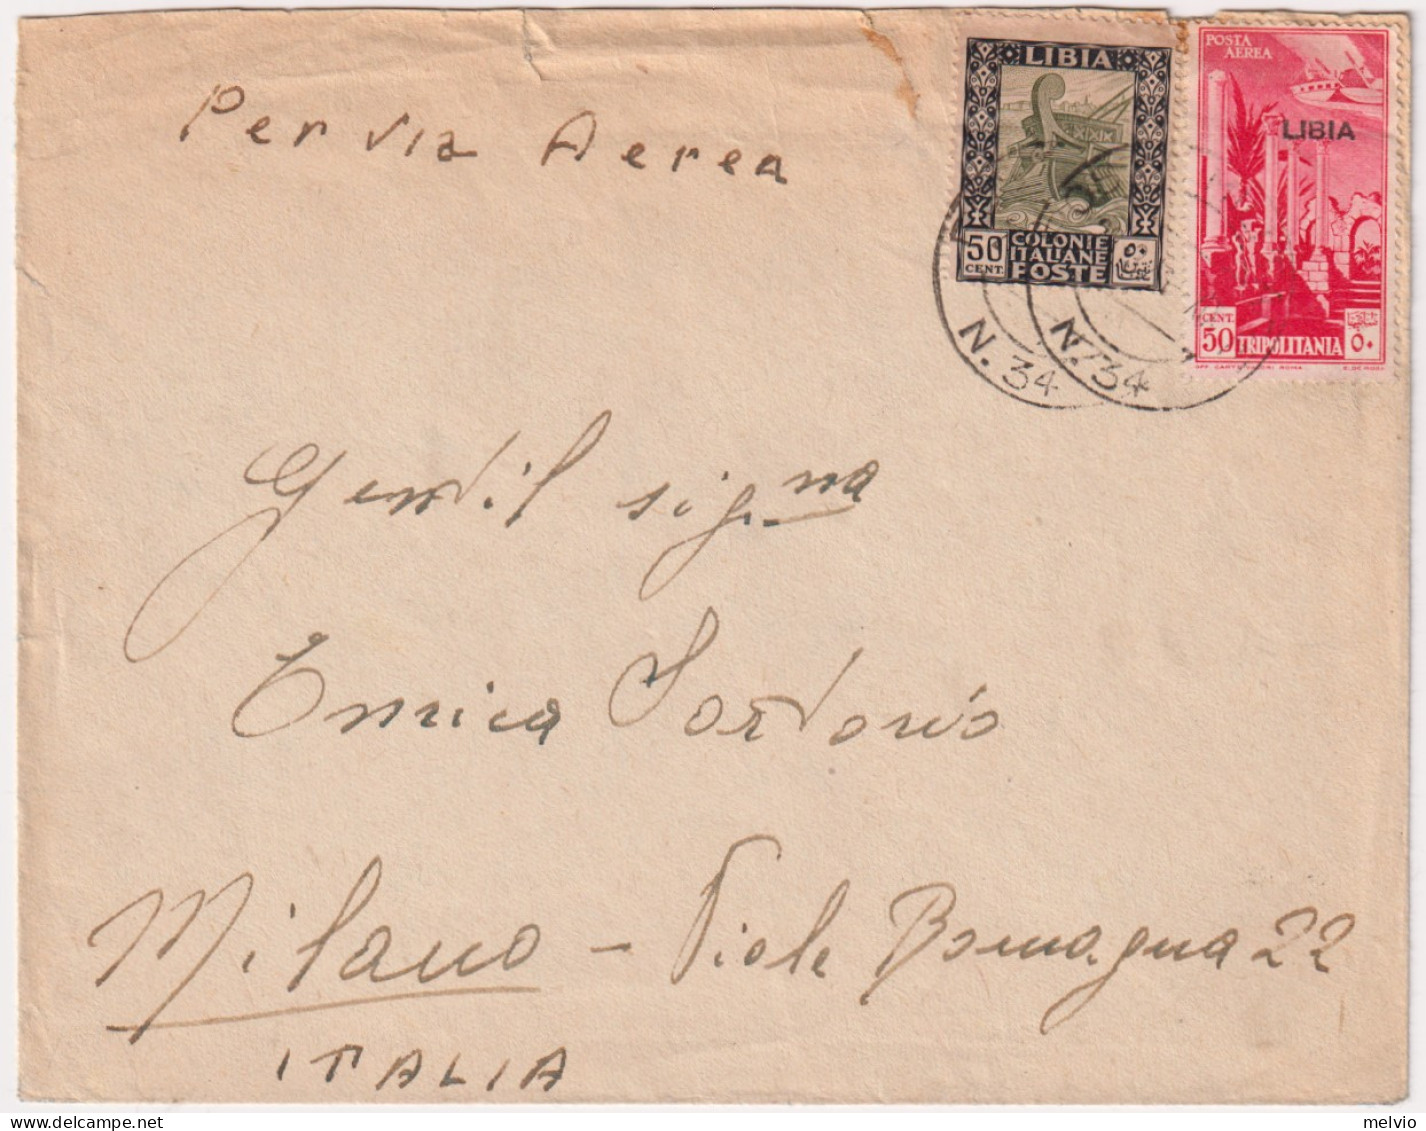 Per via Aerea
LIBIA
XIXIX
50 COLONIE ٥٠
CENT. ITALIANE
POSTE
POSTA
AEREA
LIBIA
CENT.
50 TRIPOLITANIA ٥٠
N. 34
N. 34
Gentil sig.na
Enrica Sartorio
Milano - Viale Romagna 22
ITALIA
melvio